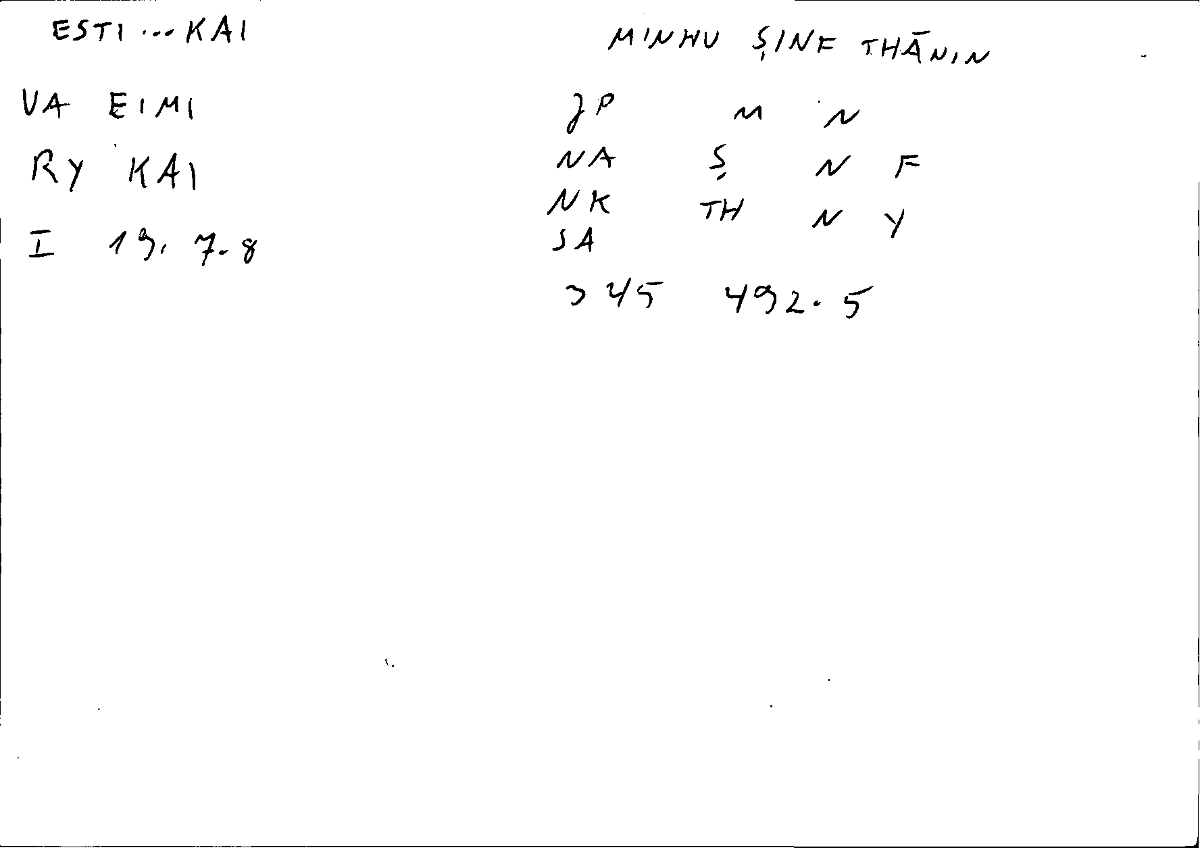 ESTI ... KAI
VA EIMI
RY KAI
I 19. 7-8
MINHU ṢINF THĀNIN
JP M N
NA Ṣ N F
NK TH N Y
SA
> 45 492.5